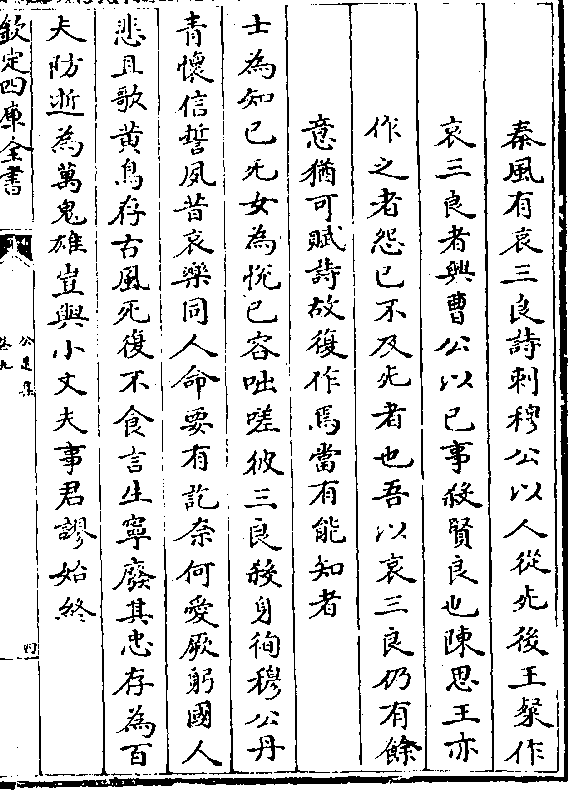 秦風有哀三良詩刺穆公以人從死後王粲作
哀三良者興曹公以已事殺賢良也陳思王亦
作之者怨已不及死者也吾以哀三良仍有餘
意猶可賦詩故復作焉當有能知者
士為知已死女為悅已容咄嗟彼三良殺身徇穆公丹
青懷信誓夙昔哀樂同人命要有訖奈何愛厥躬國人
悲且歌黃鳥存古風死復不食言生寧廢其忠存為百
夫防逝為萬鬼雄豈與小丈夫事君謬始終
欽定四庫全書
公是集
卷九
四